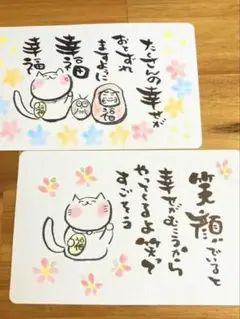 たくさんの幸せが
おとずれ
ますように
幸福
幸福
福
笑顔でいると
幸せがむこうから
やってくるよ笑って
すごそう
福